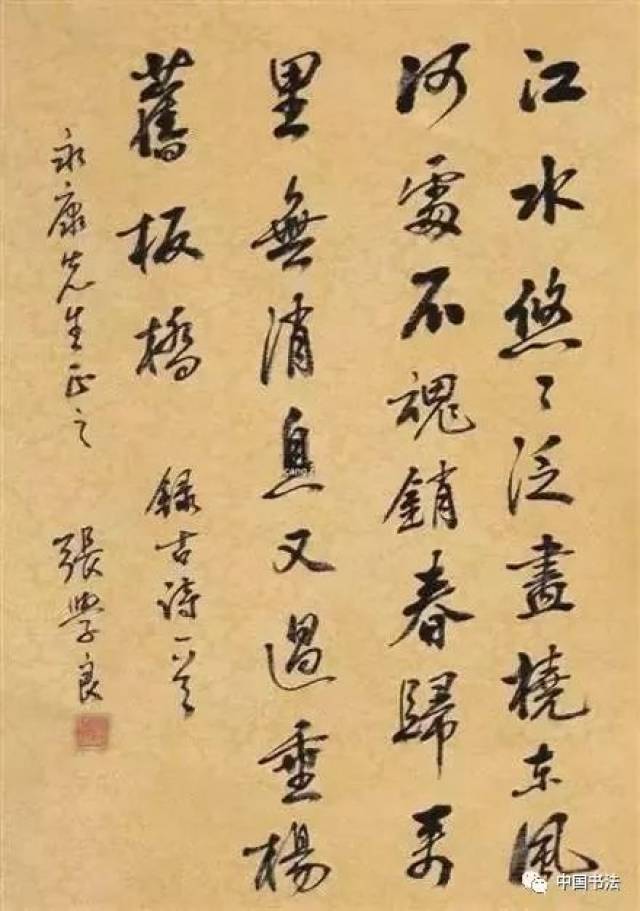 江水悠〻泛畫橈東風
何處不魂銷春歸萬
里無消息又過垂楊
舊板橋
錄古詩一首
永康先生正之
張學良
中国书法